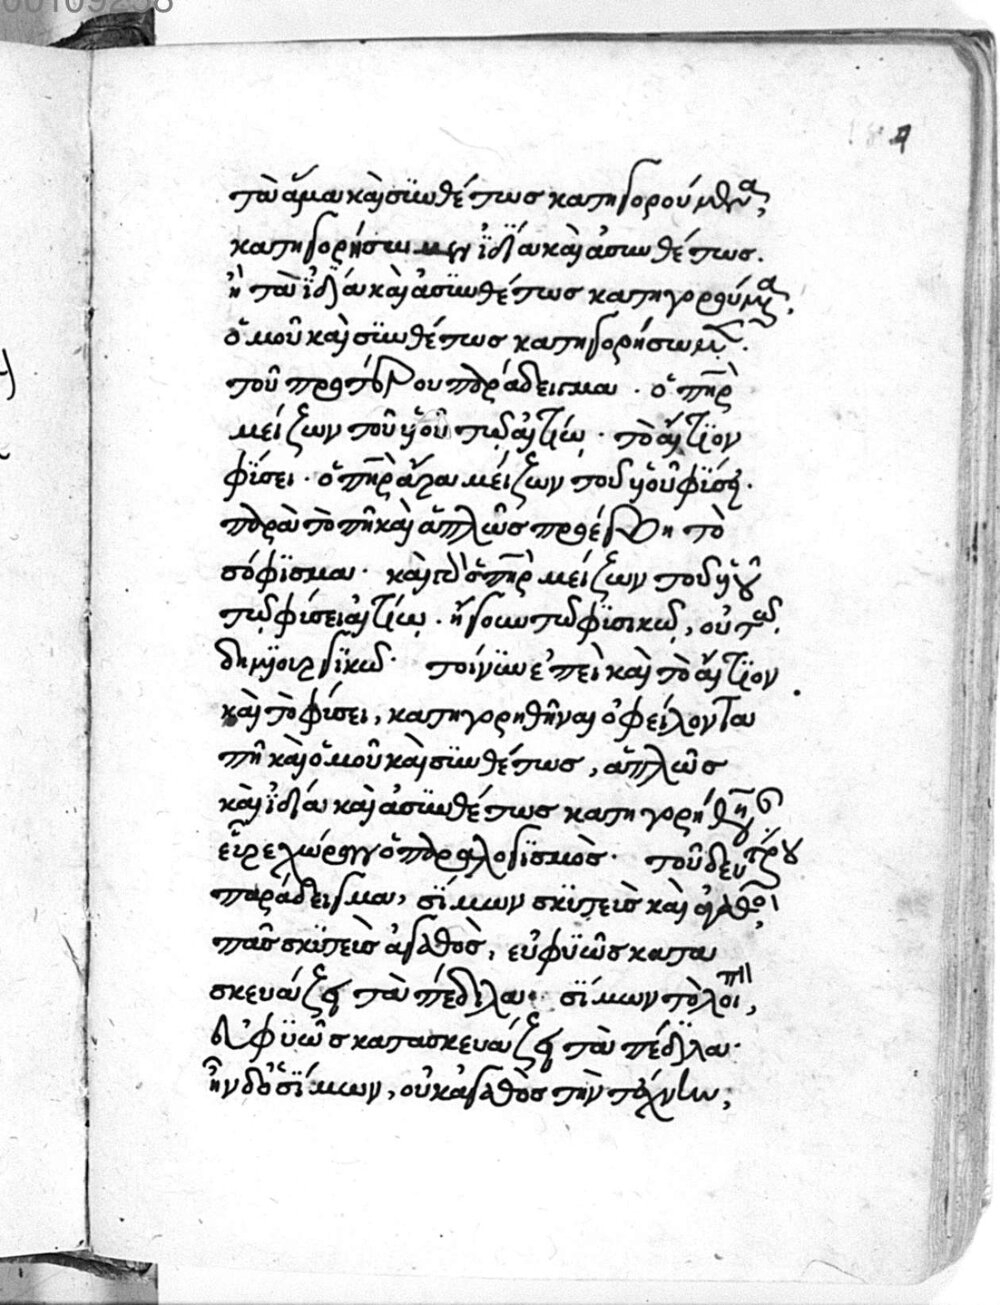 τὰ ἅμα καὶ συνθέτως κατηγορούμενα,
κατηγορήσωμεν ἰδία καὶ ἀσυνθέτως.
ἢ τὰ ἰδία καὶ ἀσυνθέτως κατηγορούμενα,
ὁμοῦ καὶ συνθέτως κατηγορήσωμεν.
τοῦ προτέρου παράδειγμα. ὁ πατὴρ
μείζων τοῦ υἱοῦ τῷ αἰτίῳ. τὸ αἴτιον
φύσει. ὁ πατὴρ ἄρα μείζων τοῦ υἱοῦ φύσει.
παρὰ τὸ πῆ καὶ ἁπλῶς προέβη τὸ
σόφισμα. καὶ ὁ πατὴρ μείζων τοῦ υἱοῦ
τῷ φύσει αἰτίῳ. ἤγουν τῷ φυσικῷ, οὐ τῷ
δημιουργικῷ. τοίνυν ἐπεὶ καὶ τὸ αἴτιον
καὶ τὸ φύσει, κατηγορηθῆναι ὀφείλοντα
πῆ καὶ ὁμοῦ καὶ συνθέτως, ἁπλῶς
καὶ ἰδία καὶ ἀσυνθέτως κατηγορήθησαν.
εὗρε χώραν ὁ παραλογισμὸς. τοῦ δευτέρου
παράδειγμα, σίμων σκυτεὺς καὶ ἀγαθὸς,
πᾶς σκυτεὺς ἀγαθὸς, εὐφυῶς κατα
σκευάζει τὰ πέδιλα. σίμων
εὐφυῶς κατασκευάζει τὰ πέδιλα.
ἦν δὲ ὁ σίμων, οὐκ ἀγαθὸς τὴν τέχνην,